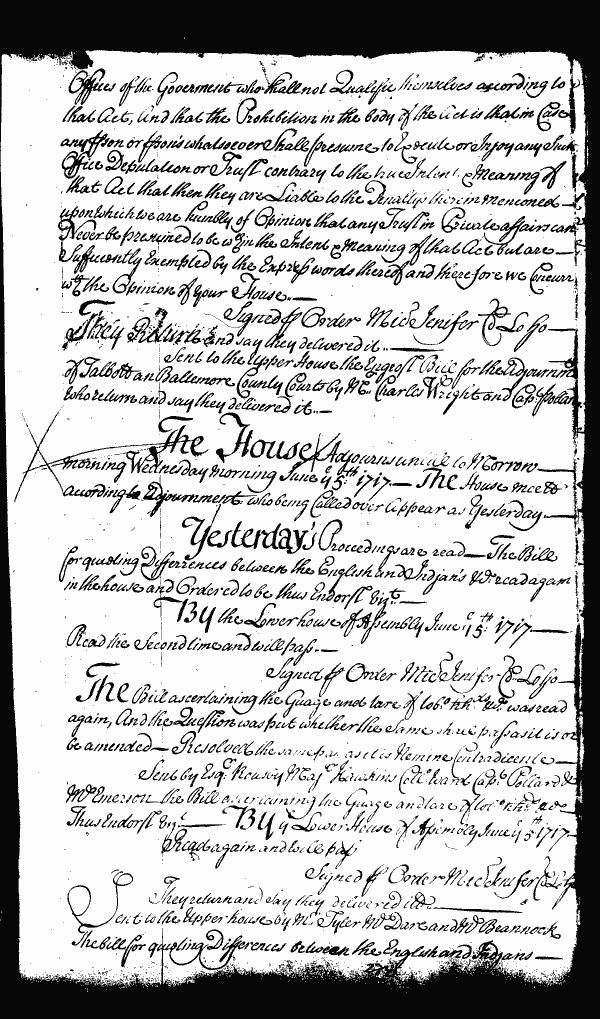 Offices of the Goverment who shall not Qualifie themselves according to
that Act, And that the Prohibition in the body of the Act is that in Case
any pson or psons whatsoever Shall presume to Execute or Injoy any Such
Office Deputation or Trust contrary to the true Intent & Meaning of
that Act that then they are Liable to the Penaltys therein mencioned
upon which we are humbly of Opinion that any Trust in Private affairs can
Never be presumed to be wthin the Intent & Meaning of that Act but are
Sufficiently Exempted by the Express words thereof and therefore we Concurr
wth the Opinion of your House.
Signed p Order Mic: Jenifer Cl Lo Ho
They Return and say they delivered it
Sent to the Upper House the Engrost Bill for the Adjournmt
of Talbott an Baltemore County Courts by Mr. Charles Wright and Capt Pollard
who return and say they delivered it
The House Adjourns untill to Morrow
morning Wednesday morning June ye 5th 1717 The House meett
according to Adjournment who being Called over Appear as Yesterday
Yesterday's Proceedings are read The Bill
for quieting Differences between the English and Indjan's &c. read again
in the house and Ordered to be thus Endorst Vizt.
By the Lower house of Assembly June ye 5th 1717
Read the Second time and will pass.
Signed p Order Mic: Jenifer Cl Lo Ho
The Bill ascertaining the Guage and tare of tobo. hhds &c. was read
again, And the Question was put whether the same shall pass as it is or
be amended Resolved the same pass as it is Nemine Contradicente
Sent by Esqr. Majr. Hawkins Coll Ward Capt. Pollard &
Mr. Emerson the Bill ascertaining the Guage and tare of tobo. hhds. &c
Thus Endorst Vizt. By ye Lower House of Assembly June ye 5th 1717
Read again and will pass
Signed p Order Mic: Jenifer Cl Lo Ho
They return and say they delivered itt
Sent to the Upper house by Mr. Tyler Mr. Dare and Mr. Beannock
The bill for quieting Differences between the English and Indjans